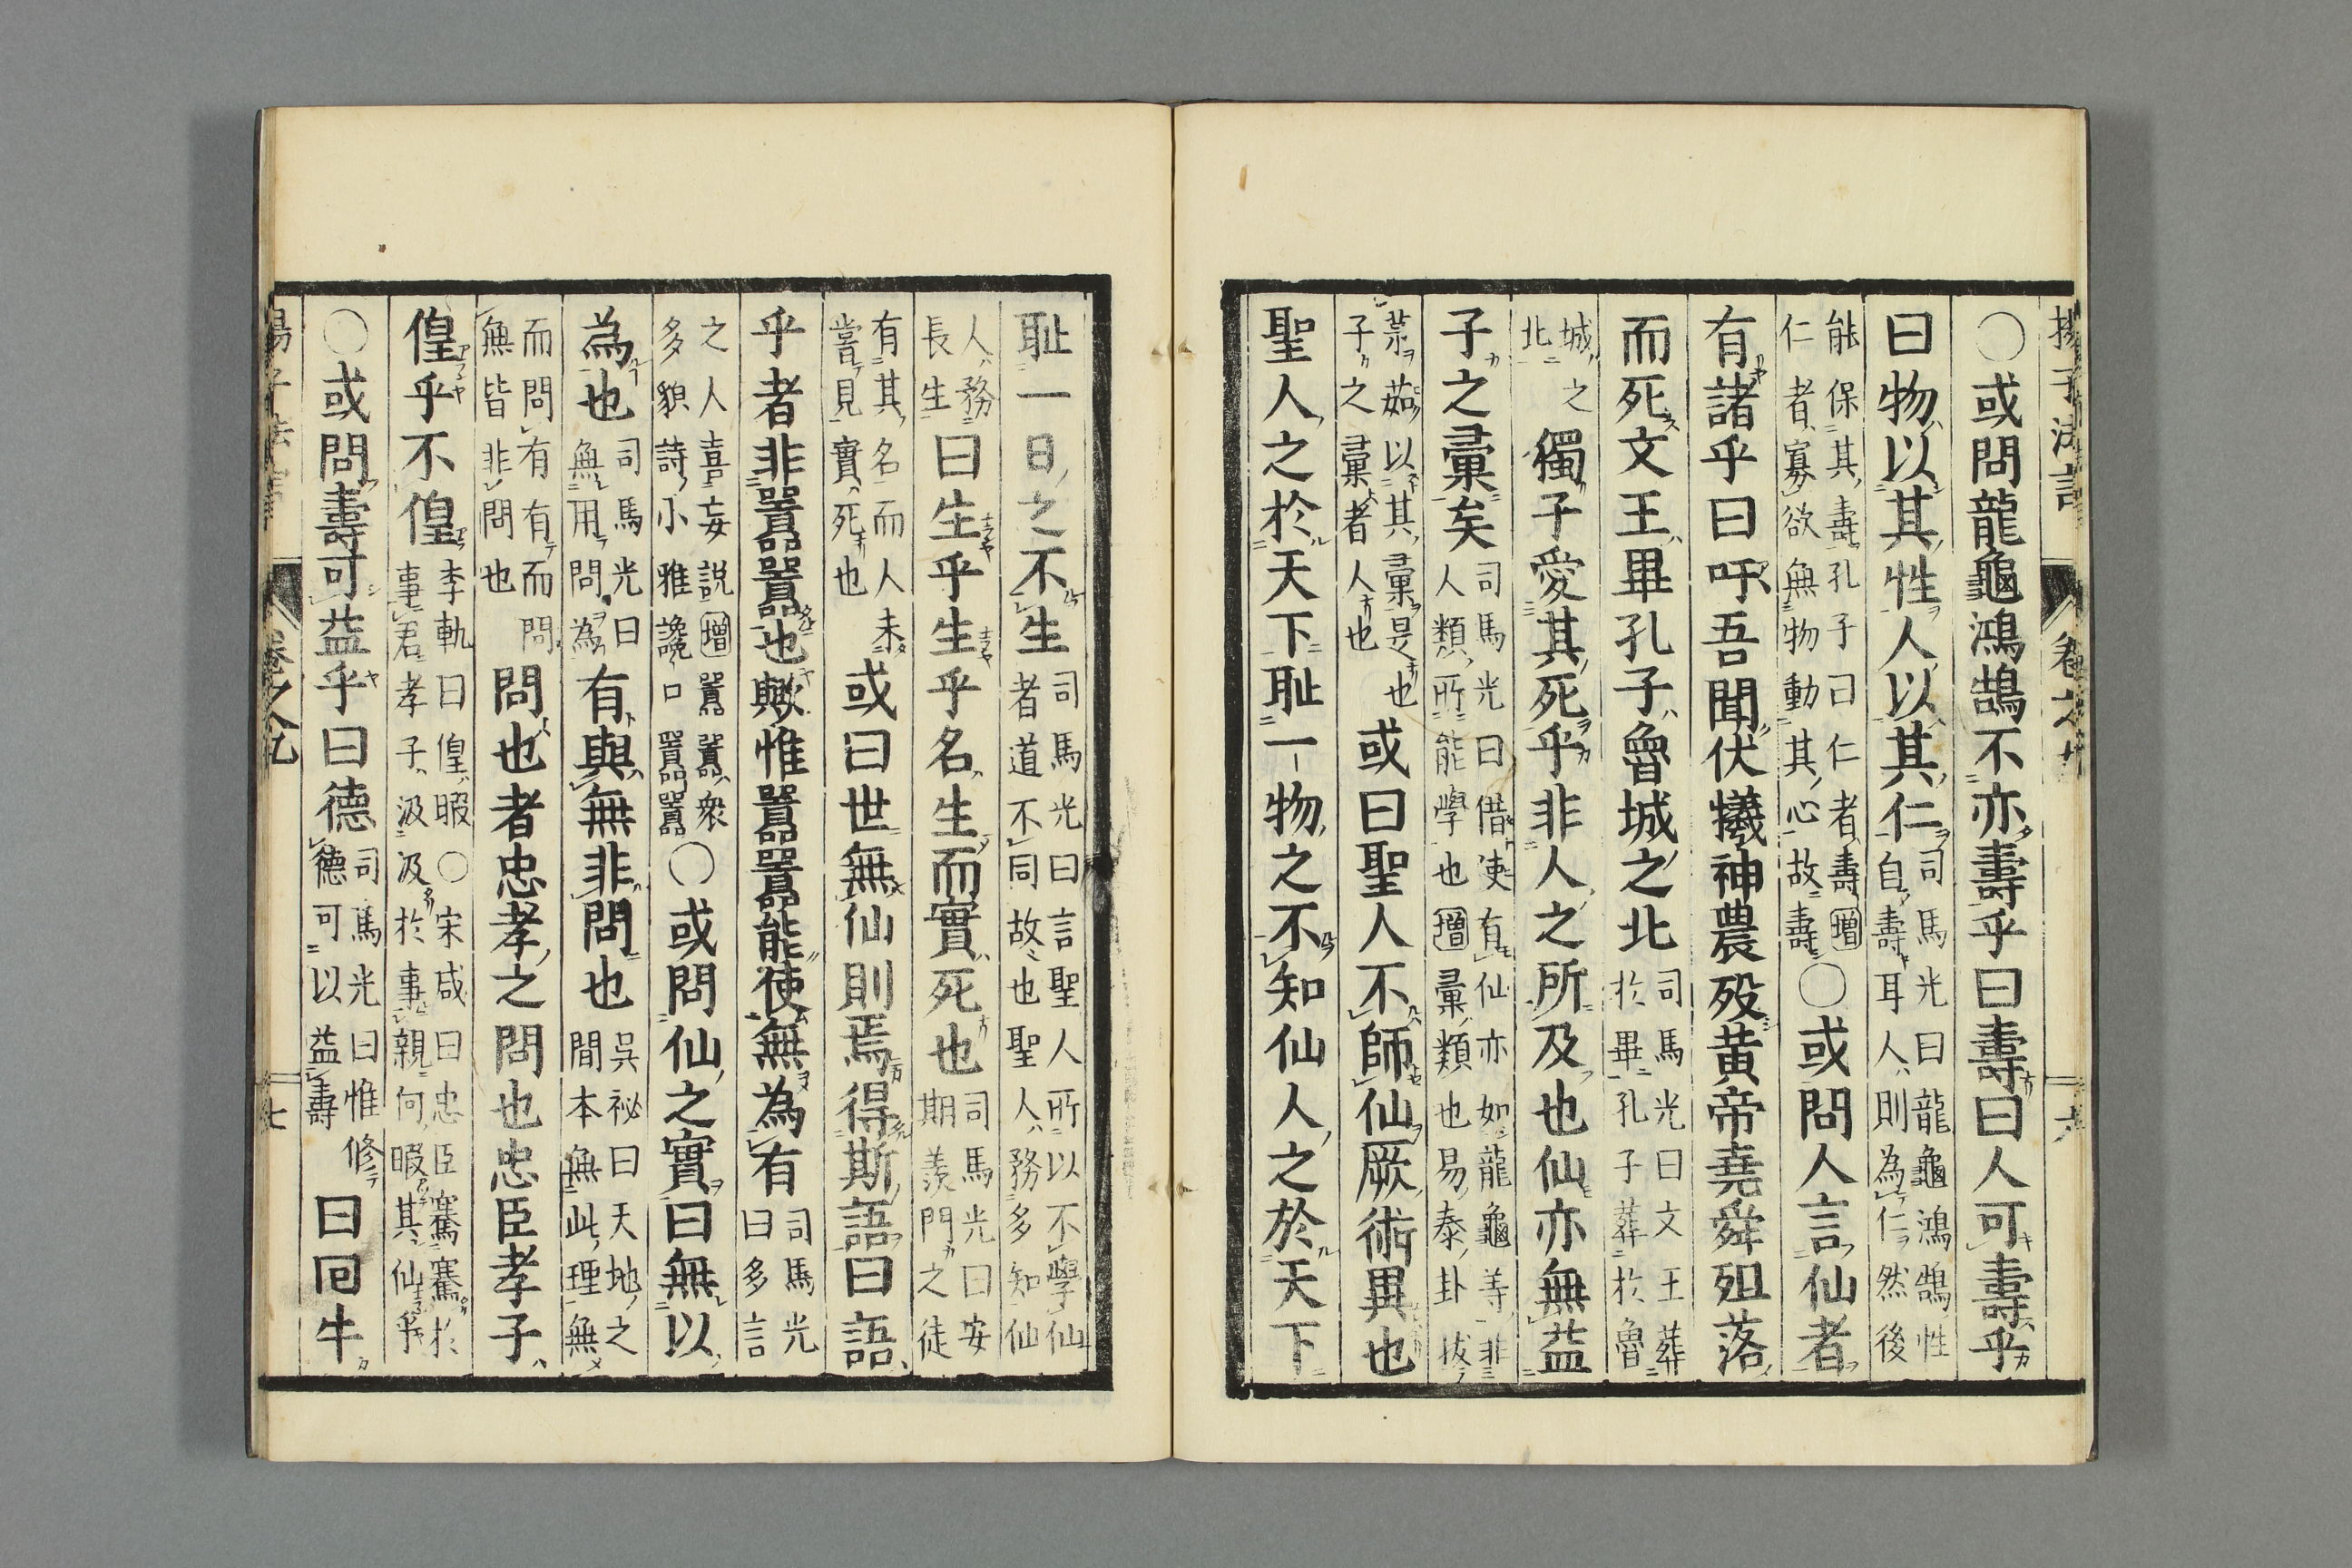 揚子法言 卷之九 六
○或問龍龜鴻鵠不亦壽乎曰壽曰人可壽乎
曰物以其性人以其仁司馬光曰龍龜鴻鵠性自壽耳人則為仁然後
能保其壽孔子曰仁者壽増仁者寡欲無物動其心故壽○或問人言仙者
有諸乎曰吁吾聞伏犧神農歿黃帝堯舜殂落
而死文王畢孔子魯城之北司馬光曰文王葬於畢孔子葬於魯
城之北獨子愛其死乎非人之所及也仙亦無益
子之彙矣司馬光曰借使有仙亦如龍龜等非人類所能學也増彙類也易泰卦拔
茅茹以其彙是也子之彙者人也或曰聖人不師仙厥術異也
聖人之於天下恥一物之不知仙人之於天下
恥一日之不生司馬光曰言聖人所以不學仙者道不同故也聖人務多知仙
人務長生曰生乎生乎名生而實死也司馬光曰安期羨門之徒
有其名而人未嘗見實死也或曰世無仙則焉得斯語曰語
乎者非嚚嚚也歟惟嚚嚚能使無為有司馬光曰多言
之人喜妄說増嚚嚚衆多貌詩小雅讒口嚚嚚○或問仙之實曰無以
為也司馬光曰無用問為有與無非問也吳祕曰天地之間本無此理無
而問有有而問無皆非問也問也者忠孝之問也忠臣孝子
偟乎不偟李軌曰偟暇○宋咸曰忠臣騫騫於事君孝子汲汲於事親何暇其仙乎
○或問壽可益乎曰德司馬光曰惟修德可以益壽曰回牛
揚子法言 卷之九 七